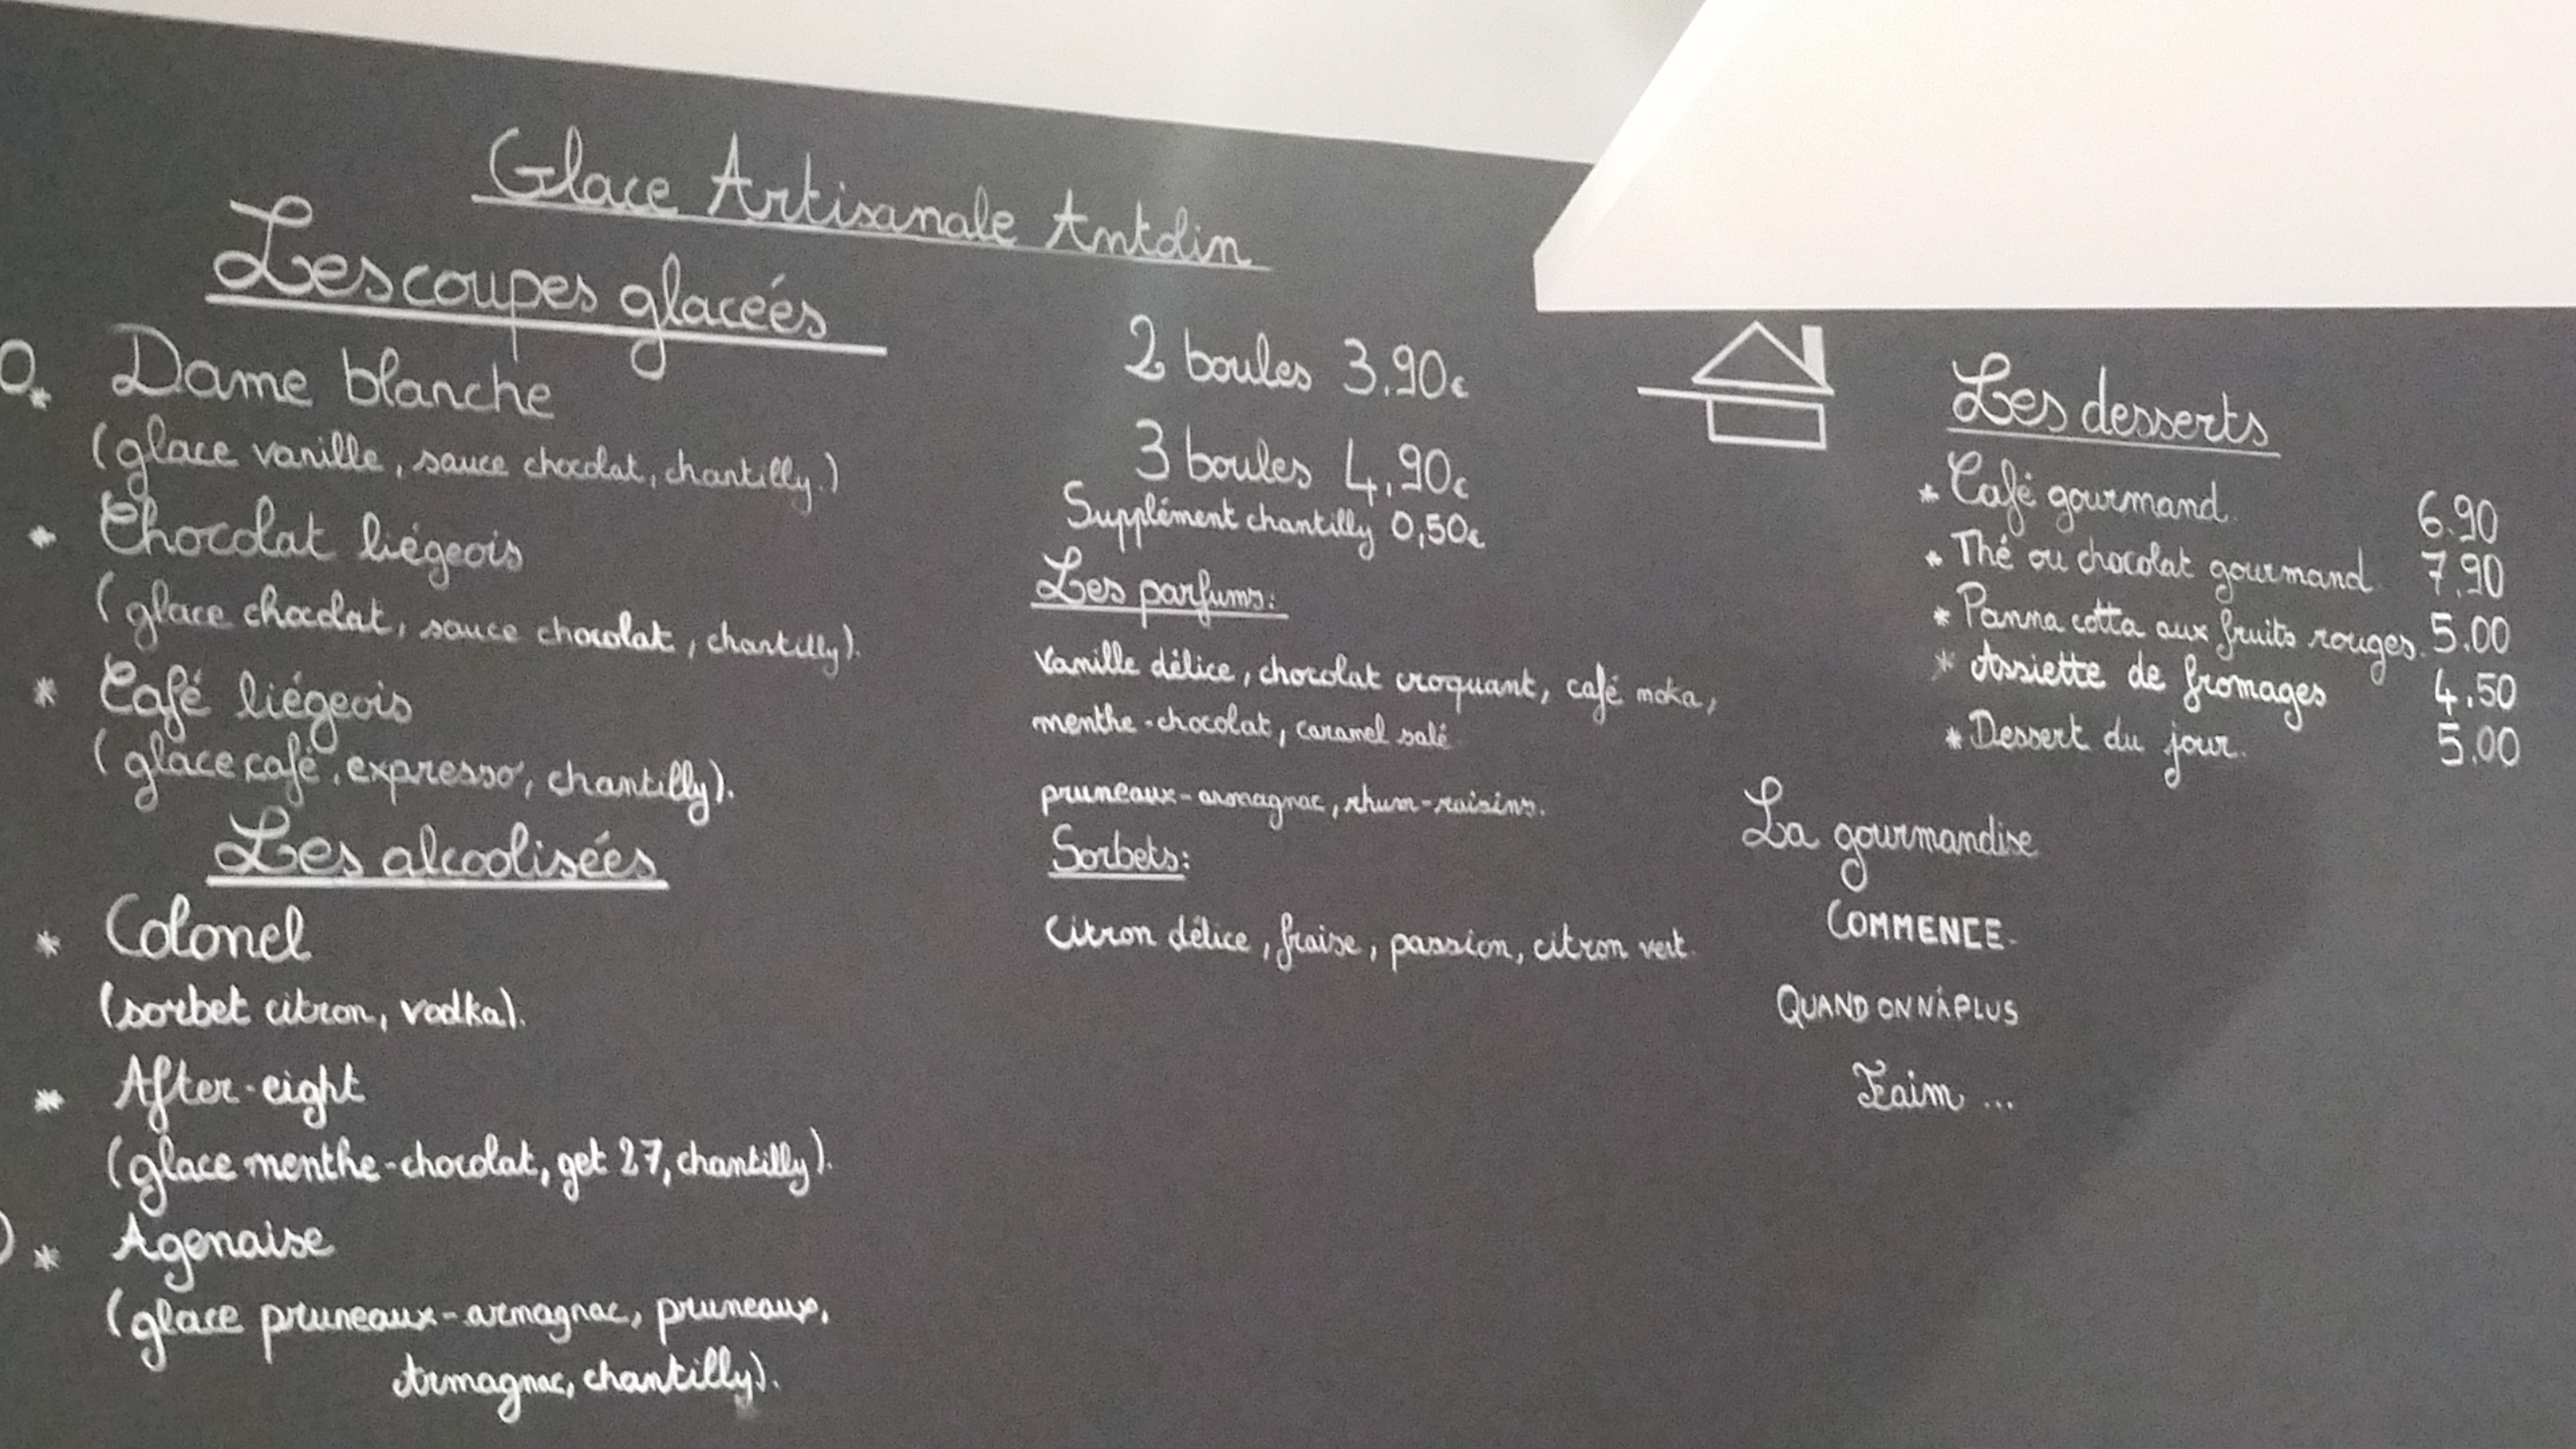 Glace Artisanale Antdin
Les coupes glacées
* Dame blanche
(glace vanille, sauce chocolat, chantilly.)
* Chocolat liégeois
(glace chocolat, sauce chocolat, chantilly).
* Café liégeois
(glace café, expresso, chantilly).
Les alcoolisées
* Colonel
(sorbet citron, vodka).
* After-eight
(glace menthe-chocolat, get 27, chantilly).
* Agenaise
(glace pruneaux-armagnac, pruneaux,
Armagnac, chantilly).
2 boules 3.90€
3 boules 4,90€
Supplément chantilly 0,50€
Les parfums:
Vanille délice, chocolat croquant, café moka,
menthe-chocolat, caramel salé
pruneaux-armagnac, rhum-raisins.
Sorbets:
Citron délice, fraise, passion, citron vert.
Les desserts
* Café gourmand. 6.90
* Thé ou chocolat gourmand 7.90
* Panna cotta aux fruits rouges. 5.00
* Assiette de fromages 4.50
* Dessert du jour. 5.00
La gourmandise
COMMENCE.
QUAND ON N'A PLUS
Faim ...